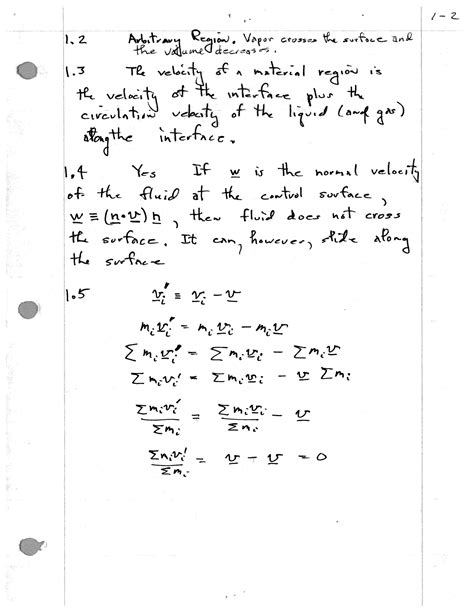 1-2
1.2 Arbitrary Region. Vapor crosses the surface and
the volume decreases.
1.3 The velocity of a material region is
the velocity of the interface plus the
circulation velocity of the liquid (and gas)
along the interface.
1.4 Yes If w is the normal velocity
of the fluid at the control surface,
w ≡ (n•v) n, then fluid does not cross
the surface. It can, however, slide along
the surface
1.5 vᵢ' ≡ vᵢ - v
mᵢvᵢ' = mᵢvᵢ - mᵢv
Σ mᵢvᵢ' = Σ mᵢvᵢ - Σ mᵢv
Σ mᵢvᵢ' = Σ mᵢvᵢ - v Σ mᵢ
Σmᵢvᵢ' / Σmᵢ = Σmᵢvᵢ / Σmᵢ - v
Σmᵢvᵢ' / Σmᵢ = v - v = 0